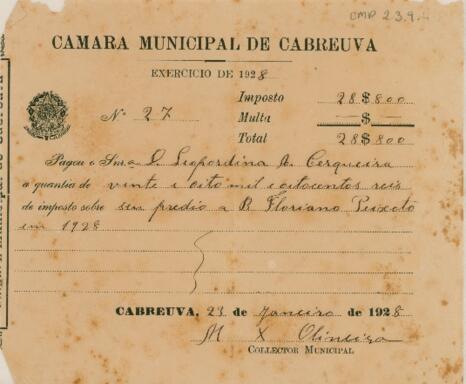 CMP 23.9.4
CAMARA MUNICIPAL DE CABREUVA
EXERCICIO DE 1928
Nº 27
Imposto 28$800
Multa $
Total 28$800
Pagou o Snr.a D. Leopordina A. Cerqueira
a quantia de vinte e oito mil e oitocentos reis
de imposto sobre seu predio a R Floriano Peixoto
em 1928
CABREUVA, 23 de Janeiro de 1928
M X Oliveira
COLLECTOR MUNICIPAL